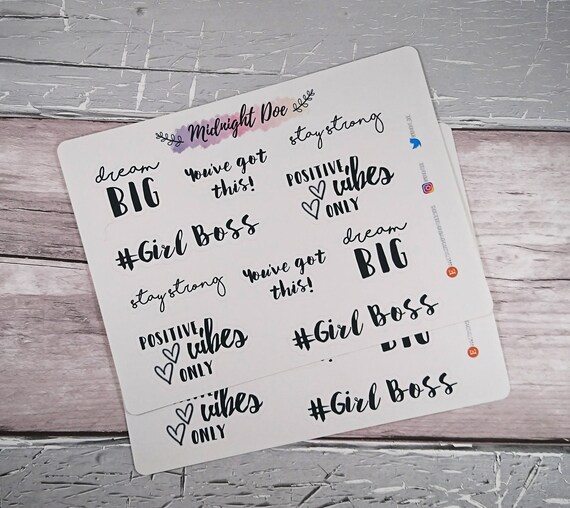 Midnight Doe
stay strong
dream
BIG
You've got
this!
POSITIVE
vibes
ONLY
#Girl Boss
dream
BIG
stay strong
You've got
this!
POSITIVE
vibes
ONLY
#Girl Boss
BIG
vibes
ONLY
#Girl Boss